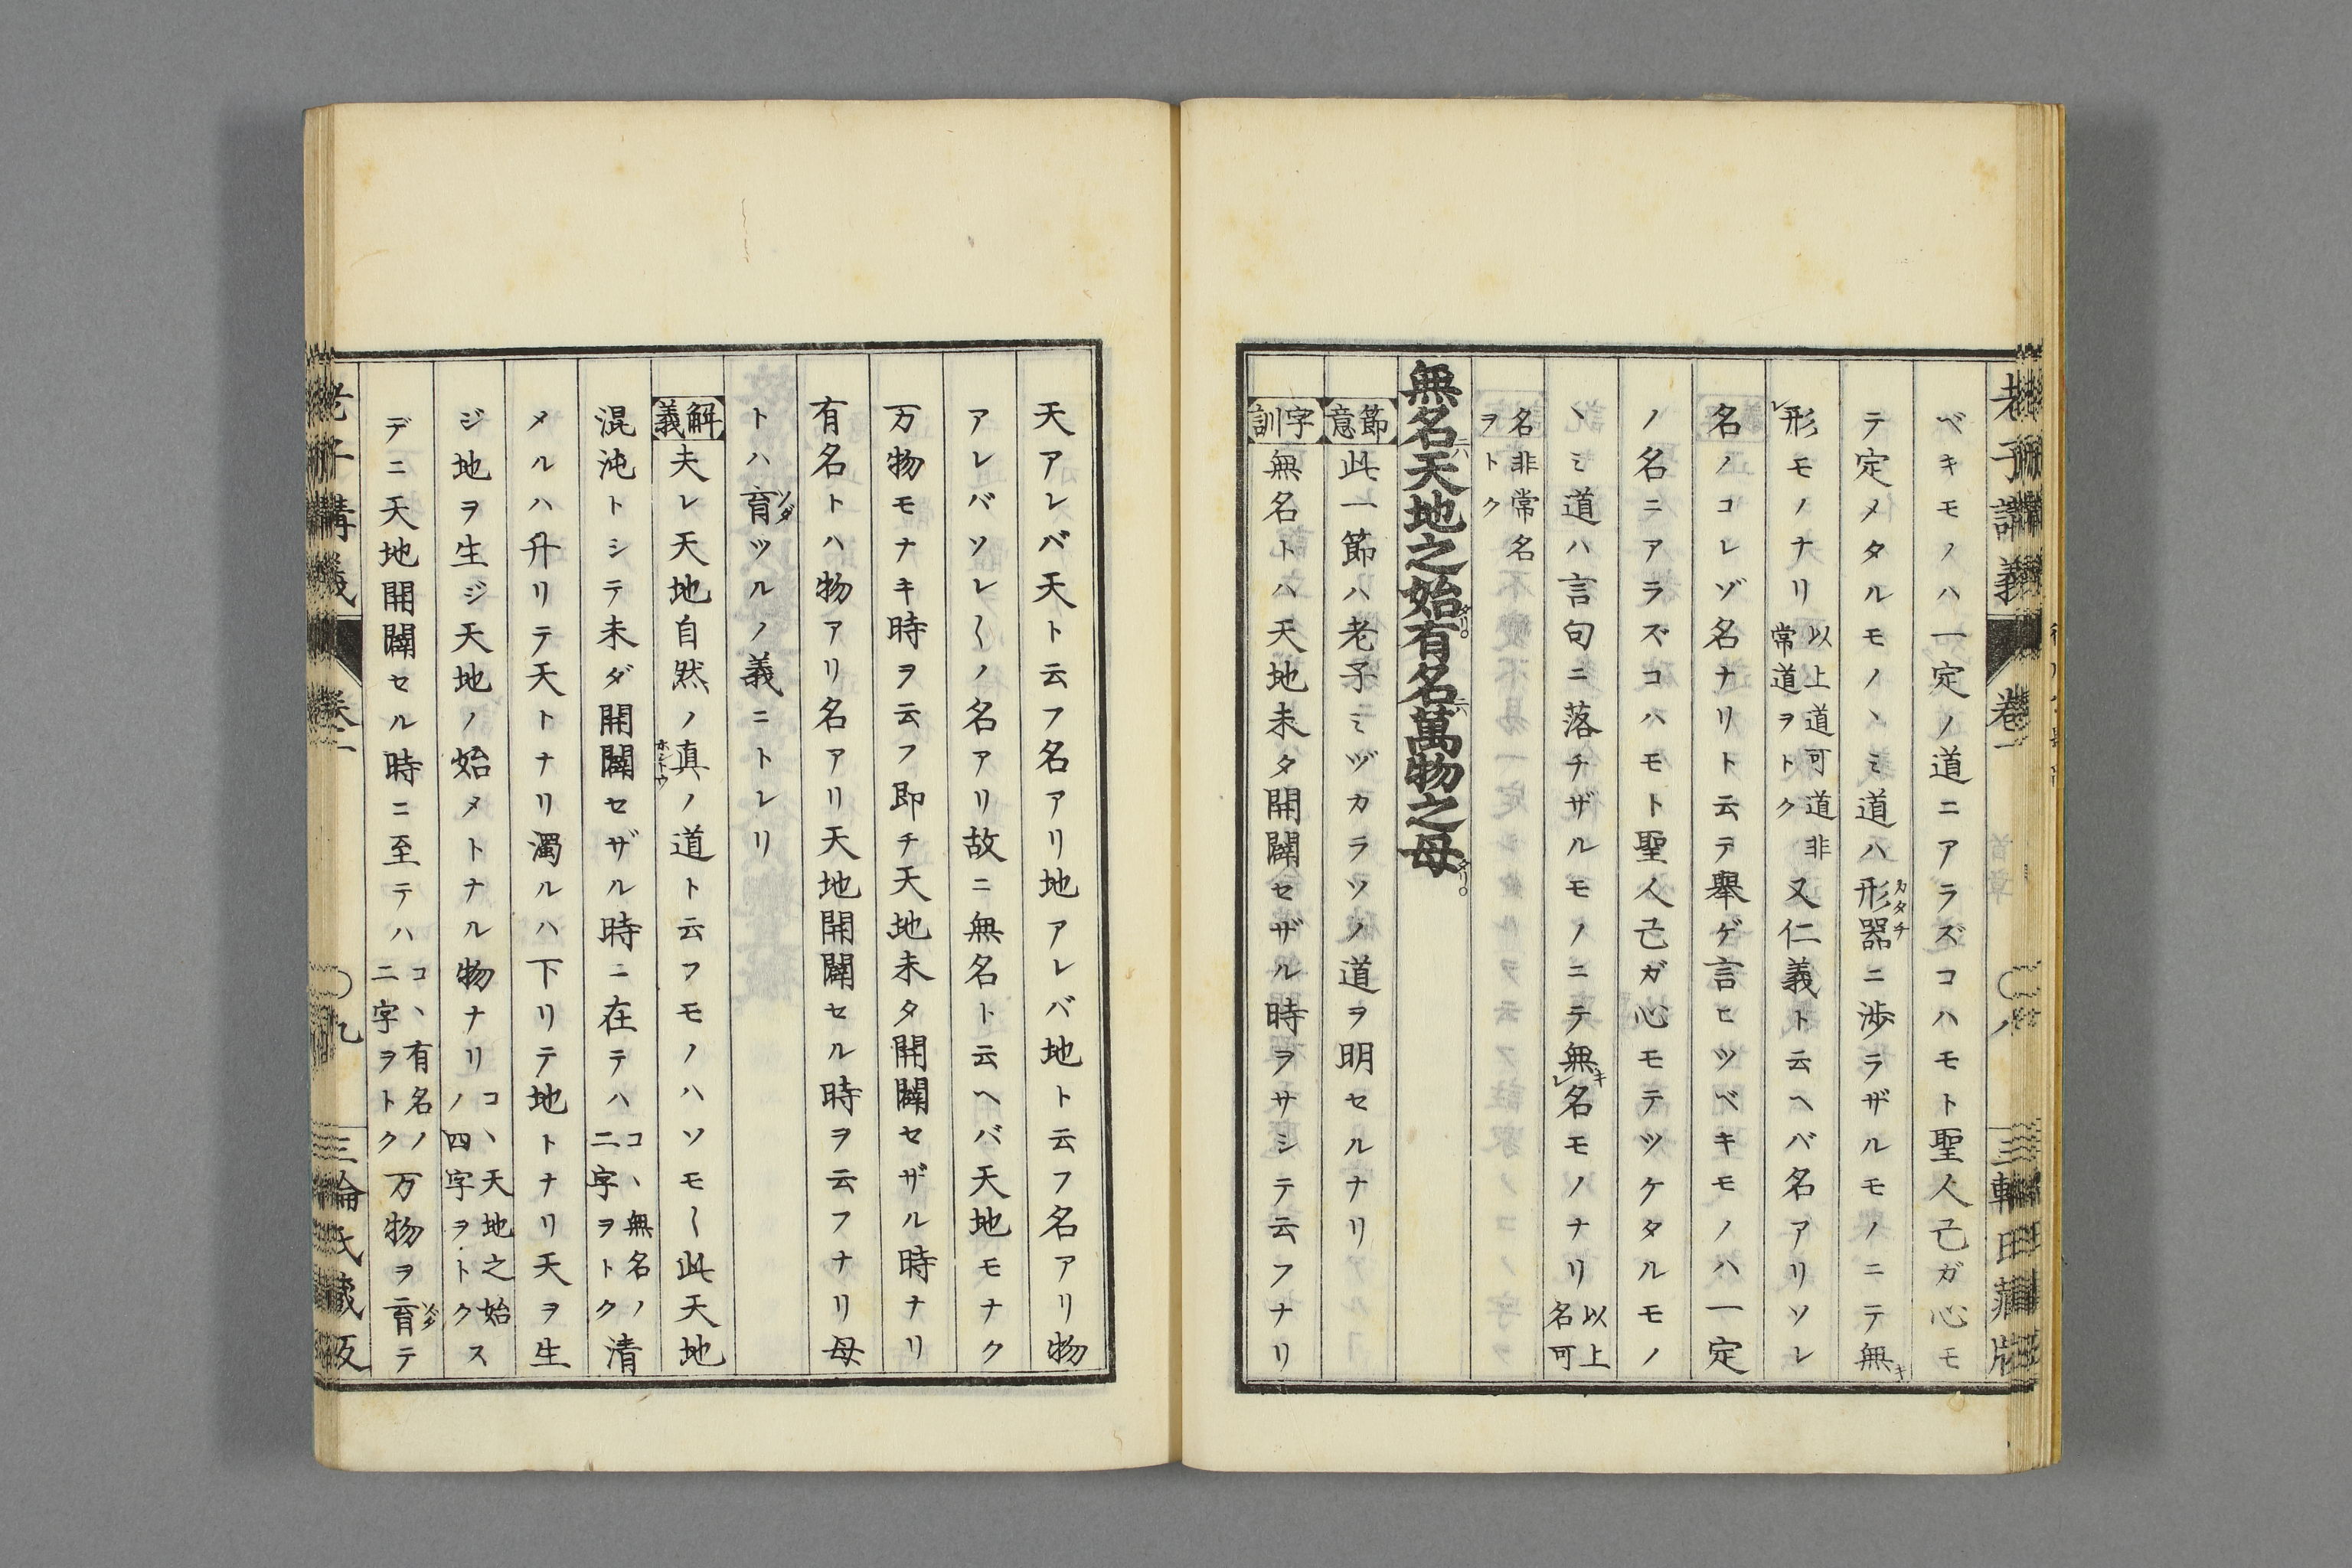 ベキモノハ一定ノ道ニアラズコハモト聖人己ガ心モ
テ定メタルモノヽミ道ハ形器カタチニ渉ラザルモノニテ無キ
レ形モノナリ以上道可道非常道ヲトク又仁義ト云ヘバ名アリソレ
名ノコレゾ名ナリト云テ舉ゲ言ヒツベキモノハ一定
ノ名ニアラズコハモト聖人己ガ心モテツケタルモノ
ヽミ道ハ言句ニ落チザルモノニテ無キレ名モノナリ以上名可
名非常名ヲトク
無名ニハ天地之始ナリ。有名ニハ萬物之母ナリ。
節意此一節ハ老子ミヅカラソノ道ヲ明セルナリ
字訓無名トハ天地未タ開闢セザル時ヲサシテ云フナリ
天アレバ天ト云フ名アリ地アレバ地ト云フ名アリ物
アレバソレ〱ノ名アリ故ニ無名ト云ヘバ天地モナク
万物モナキ時ヲ云フ即チ天地未タ開闢セザル時ナリ
有名トハ物アリ名アリ天地開闢セル時ヲ云フナリ母
トハ育ソダツルノ義ニトレリ
解義夫レ天地自然ノ真ホントウノ道ト云フモノハソモ〱此天地
混沌トシテ未ダ開闢セザル時ニ在テハコヽ無名ノ二字ヲトク清
メルハ升リテ天トナリ濁ルハ下リテ地トナリ天ヲ生
ジ地ヲ生ジ天地ノ始メトナル物ナリコヽ天地之始ノ四字ヲトクス
デニ天地開闢セル時ニ至テハコヽ有名ノ二字ヲトク万物ヲ育ソダテ
老子講義
卷一
九
三輪氏藏版